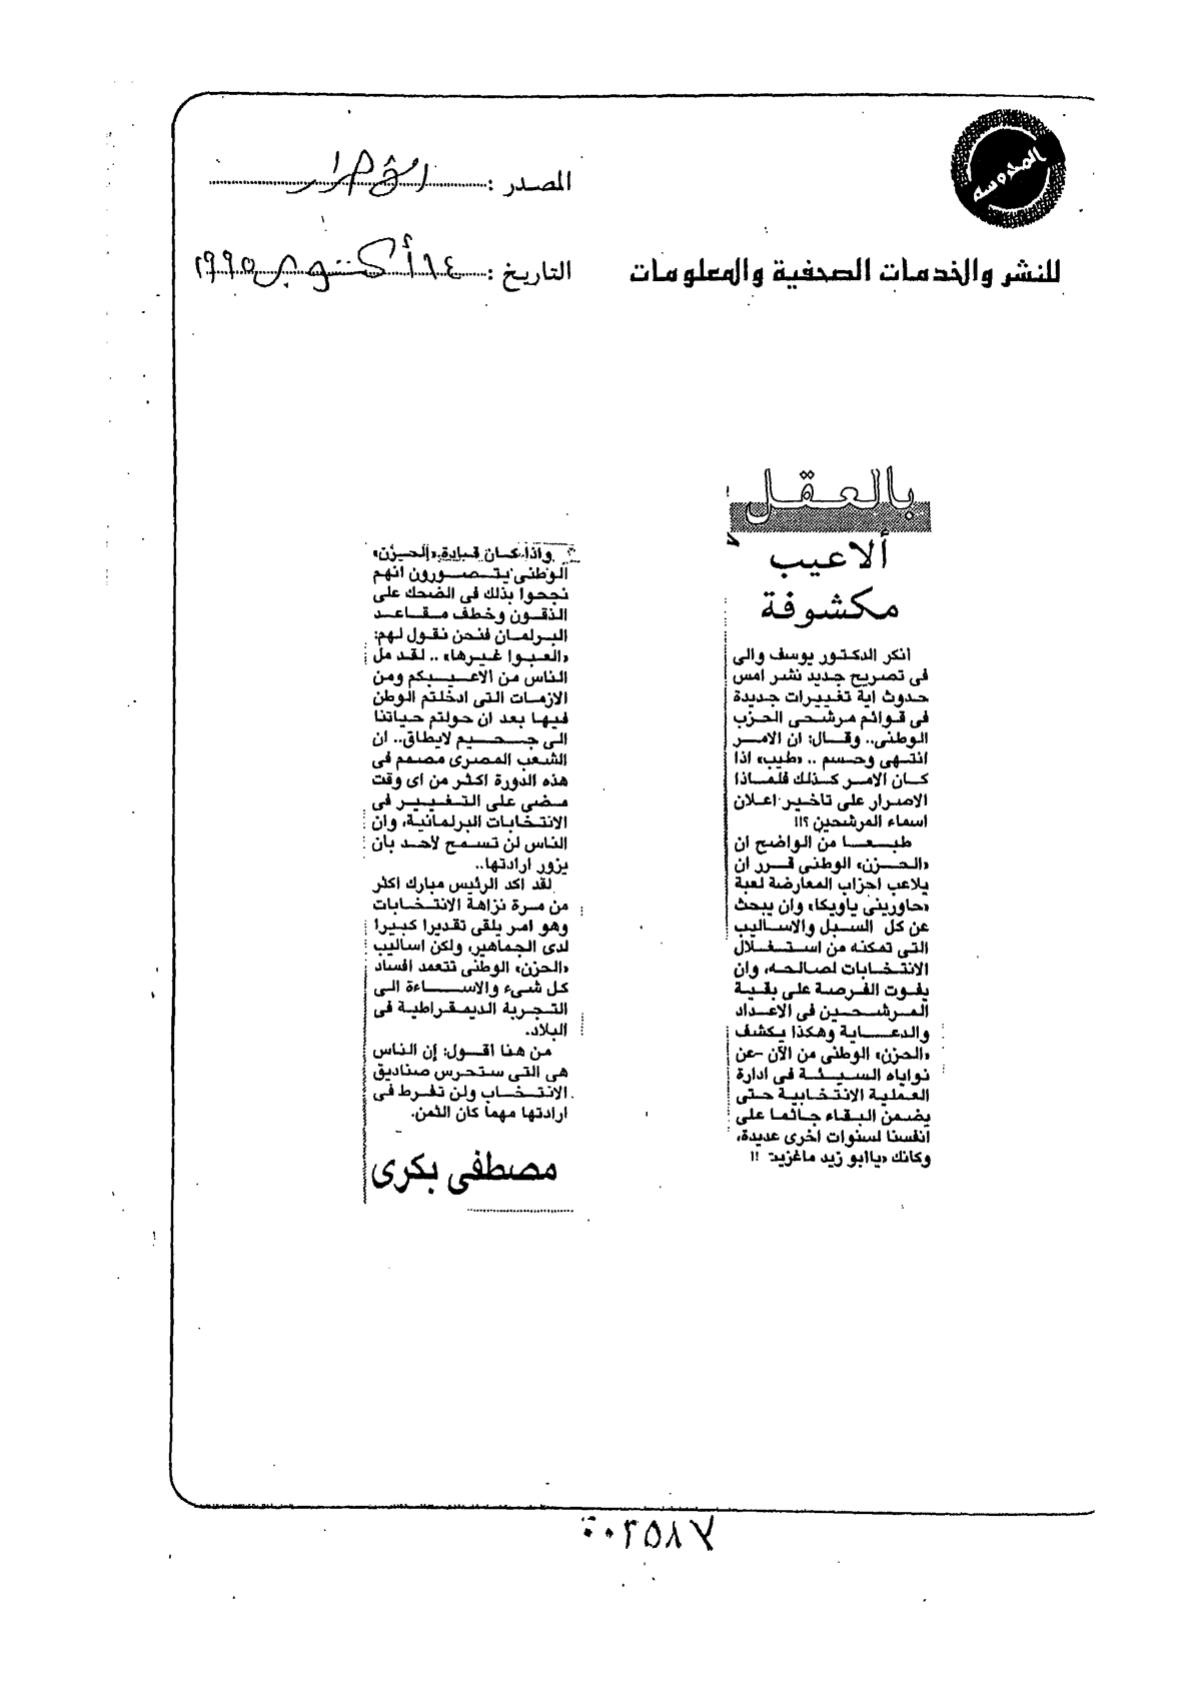 المدوسه
للنشر والخدمات الصحفية والمعلومات
المصدر : الأحرار
التاريخ : ١٤ أكتوبر ١٩٩٥
بالعقل
ألاعيب
مكشوفة
أنكر الدكتور يوسف والى
فى تصريح جديد نشر امس
حدوث اية تغييرات جديدة
فى قوائم مرشحى الحزب
الوطنى.. وقال: ان الامر
انتهى وحسم .. «طيب» اذا
كان الامر كذلك فلماذا
الاصرار على تاخير اعلان
اسماء المرشحين ؟!!
طبعا من الواضح ان
«الحزن» الوطنى قرر ان
يلاعب احزاب المعارضة لعبة
«حاورينى ياويكا» وان يبحث
عن كل السبل والاساليب
التى تمكنه من استغلال
الانتخابات لصالحه، وان
يفوت الفرصة على بقية
المرشحين فى الاعداد
والدعاية وهكذا يكشف
«الحزن» الوطنى من الآن -عن
نواياه السيئة فى ادارة
العملية الانتخابية حتى
يضمن البقاء جاثما على
انفسنا لسنوات اخرى عديدة،
وكانك «ياابو زيد ماغزيت» !!
واذا كان قيادة «الحزن»
الوطنى يتصورون انهم
نجحوا بذلك فى الضحك على
الذقون وخطف مقاعد
البرلمان فنحن نقول لهم:
«العبوا غيرها» .. لقد مل
الناس من الاعيبكم ومن
الازمات التى ادخلتم الوطن
فيها بعد ان حولتم حياتنا
الى جحيم لايطاق.. ان
الشعب المصرى مصمم فى
هذه الدورة اكثر من اى وقت
مضى على التغيير فى
الانتخابات البرلمانية، وان
الناس لن تسمح لاحد بان
يزور ارادتها..
لقد اكد الرئيس مبارك اكثر
من مرة نزاهة الانتخابات
وهو امر يلقى تقديرا كبيرا
لدى الجماهير، ولكن اساليب
«الحزن» الوطنى تتعمد افساد
كل شىء والاساءة الى
التجربة الديمقراطية فى
البلاد.
من هنا اقول: إن الناس
هى التى ستحرس صناديق
الانتخاب ولن تفرط فى
ارادتها مهما كان الثمن.
مصطفى بكرى
٠٠٢٥٨٧